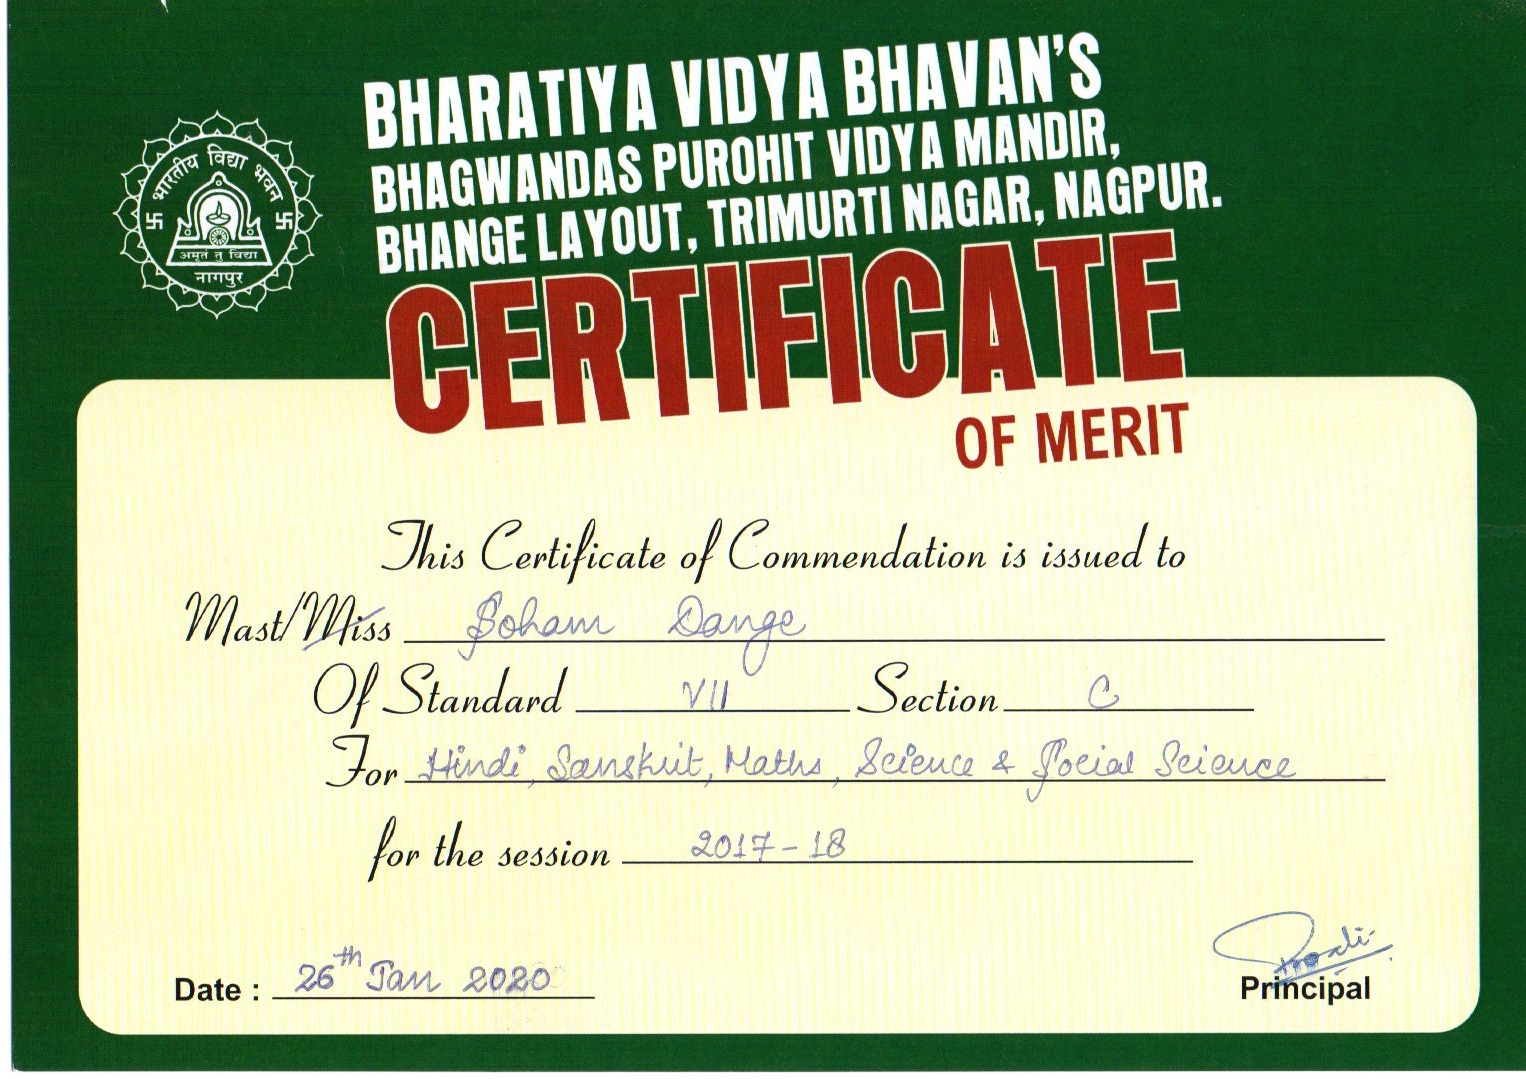 भारतीय विद्या भवन
अमृतं तु विद्या
नागपुर
BHARATIYA VIDYA BHAVAN'S
BHAGWANDAS PUROHIT VIDYA MANDIR,
BHANGE LAYOUT, TRIMURTI NAGAR, NAGPUR.
CERTIFICATE
OF MERIT
This Certificate of Commendation is issued to
Mast/Miss Soham Dange
Of Standard VII Section C
For Hindi, Sanskrit, Maths, Science & Social Science
for the session 2017-18
Date : 26th Jan 2020
Principal